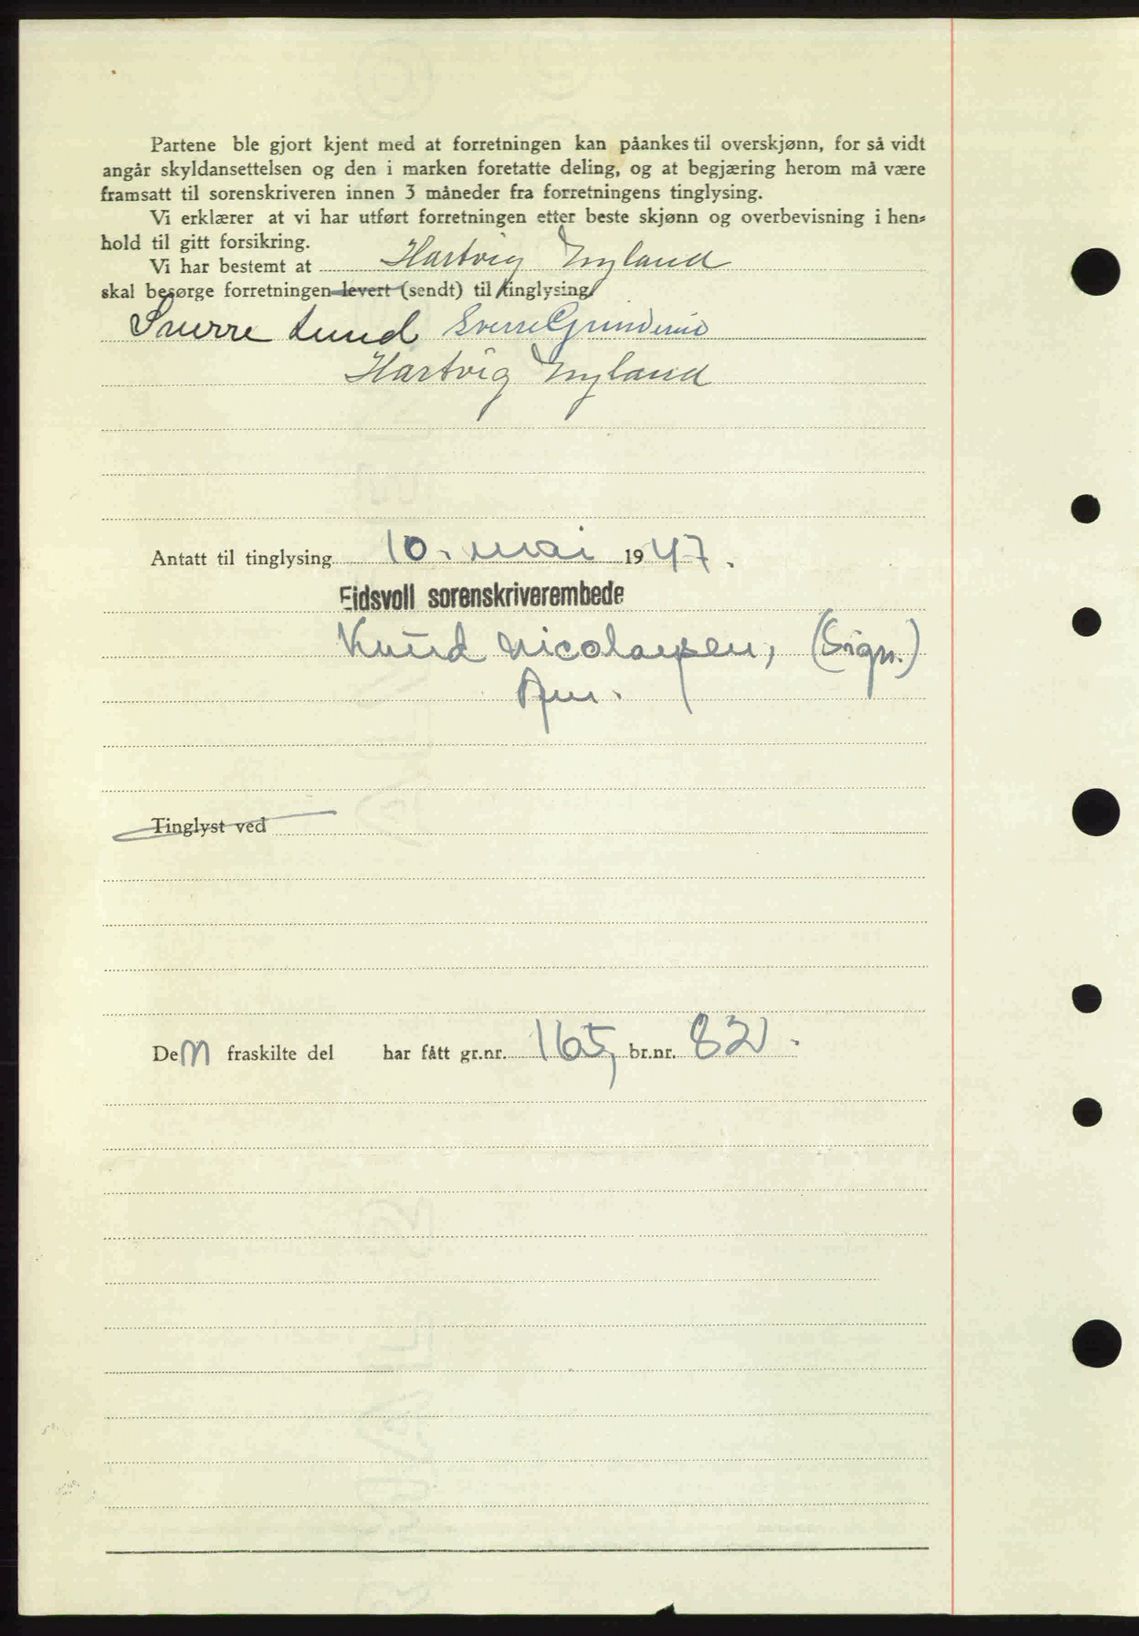 Partene ble gjort kjent med at forretningen kan påankes til overskjønn, for så vidt
angår skyldansettelsen og den i marken foretatte deling, og at begjæring herom må være
framsatt til sorenskriveren innen 3 måneder fra forretningens tinglysing.
Vi erklærer at vi har utført forretningen etter beste skjønn og overbevisning i hen-
hold til gitt forsikring.
Vi har bestemt at Hartvig Nyland
skal besørge forretningen levert (sendt) til tinglysing
Snerre Lund Sverre Grinderud
Hartvig Nyland
Antatt til tinglysing 10. mai 1947.
Eidsvoll sorenskriverembede
Knud Nicolaysen, (Sign.)
Tinglyst ved
Dem fraskilte del har fått gr.nr. 165, br.nr. 82.